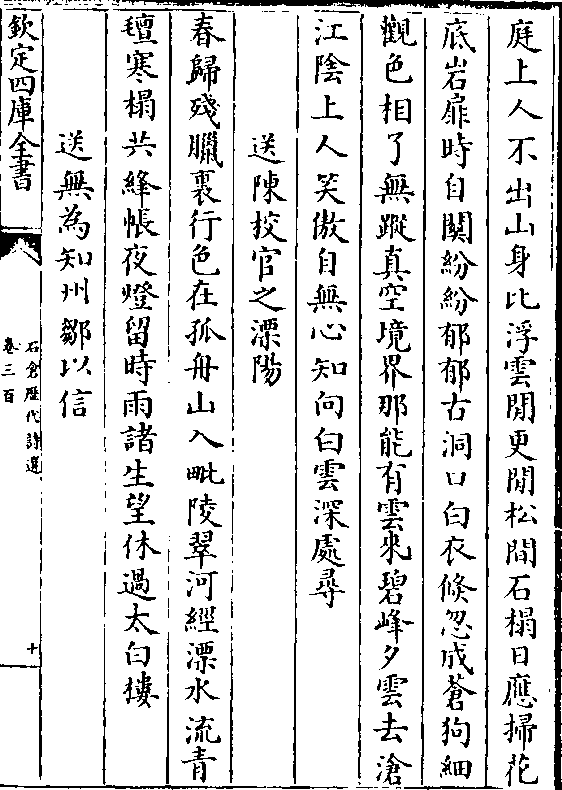 庭上人不出山身比浮雲閒更閒松間石榻日應掃花
底岩扉時自關紛紛郁郁古洞口白衣倐忽成蒼狗細
觀色相了無蹤真空境界那能有雲來碧峰夕雲去滄
江隂上人笑傲自無心知向白雲深處尋
送陳挍官之溧陽
春歸殘臘裏行色在孤舟山入毗陵翠河經溧水流青
氊寒榻共絳帳夜燈留時雨諸生望休過太白摟
送無為知州鄒以信
欽定四庫全書
石倉歴代詩選
卷三百
十